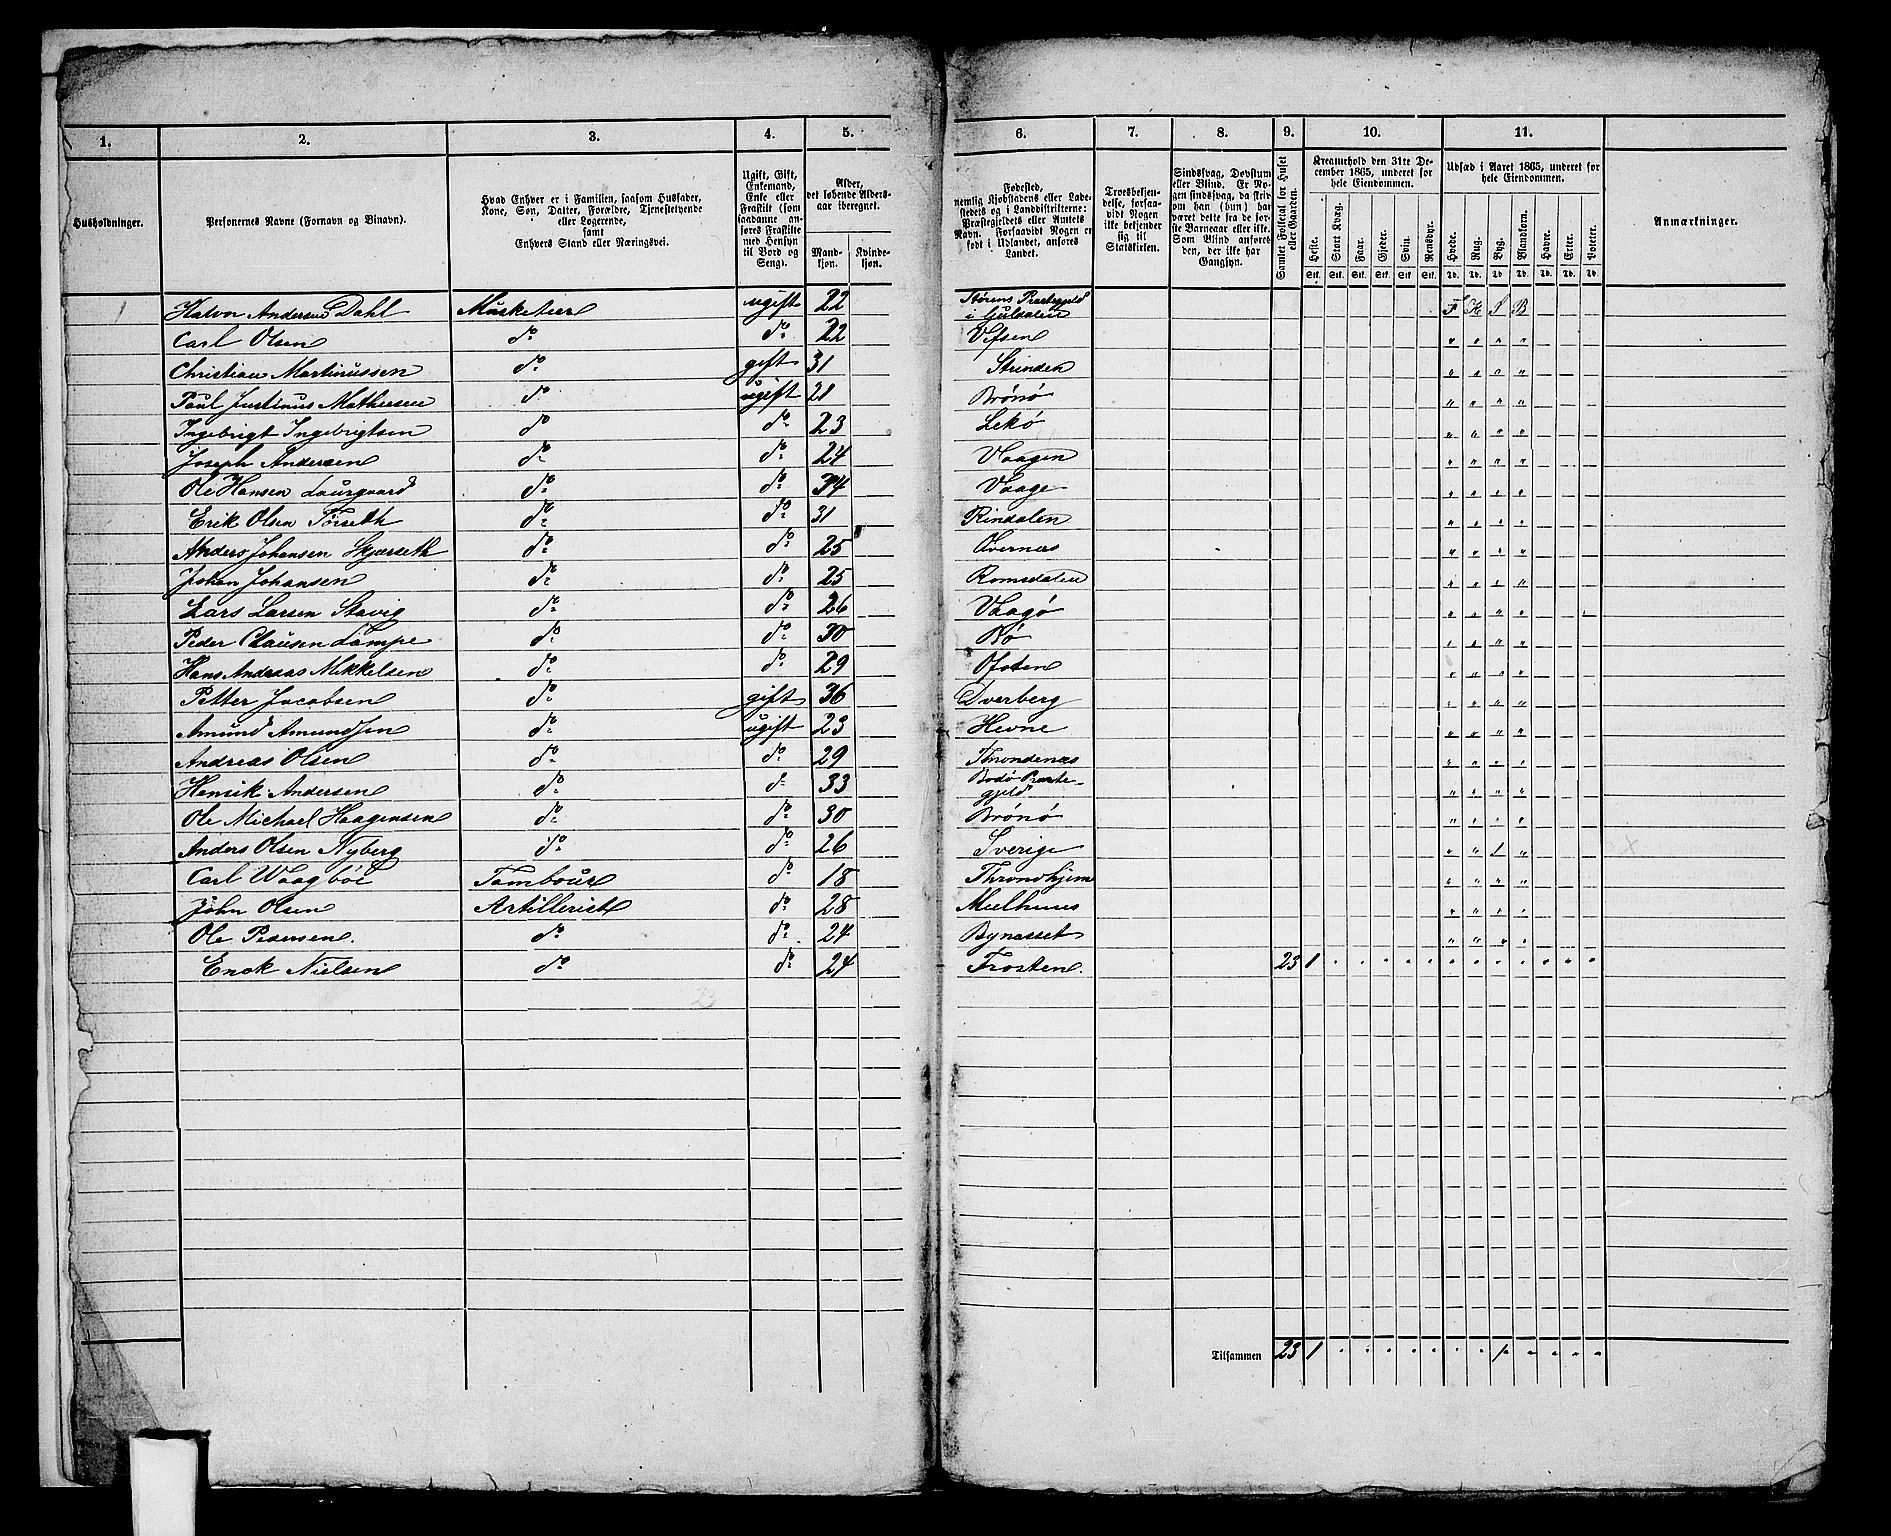 1. 2. 3. 4. 5. 6. 7. 8. 9. 10. 11.
Husholdninger.
Personernes Navne (Fornavn og Binavn).
Hvad Enhver er i Familien, saasom Husfader,
Kone, Søn, Datter, Forældre, Tjenestetyende
eller Logerende,
samt
Enhvers Stand eller Næringsvei.
Ugift, Gift,
Enkemand,
Enke eller
Fraskilt (som
saadanne an-
føres Fraskilte
med Hensyn
til Bord og
Seng).
Alder,
det løbende Alders-
aar iberegnet.
Mand-
kjøn.
Kvinde-
kjøn.
Fødested,
nemlig Kjøbstadens eller Lade-
stedets og i Landdistrikterne:
Præstegjeldets eller Amtets
Navn. Forsaavidt Nogen er
født i Udlandet, anføres
Landet.
Troesbekjen-
delse, forsaa-
vidt Nogen
ikke bekjender
sig til
Statskirken.
Sindssvag, Døvstum
eller Blind. Er No-
gen sindssvag, da skriv
om han (hun) har
været dette fra de før-
ste Barneaar eller ikke.
Som Blind anføres
den, der ikke har
Gangsyn.
Samlet Folketal for Huset
eller Gaarden.
Kreaturhold den 31te De-
cember 1865, underet for
hele Eiendommen.
Heste. Stort Kvæg. Faar. Gjeder. Svin. Rensdyr.
Stk. Stk. Stk. Stk. Stk. Stk.
Udsæd i Aaret 1865, underet for
hele Eiendommen.
Hvede. Rug. Byg. Blandkorn. Havre. Erter. Poteter.
Td. Td. Td. Td. Td. Td. Td.
Anmærkninger.
1 Halvor Andersen Dahl Musketeer ugift 22 Størens Præstegjeld i Guldalen
Carl Olsen do 22 Vefsen
Christian Martinussen do gift 31 Strinden
Paul Justinus Mathersen do ugift 21 Brønø
Ingebrigt Ingebrigtsen do do 23 Lekø
Joseph Andersen do do 24 Vaagen
Ole Hansen Laurgaard do do 34 Vaage
Erik Olsen Torseth do do 31 Rindalen
Anders Johansen Skjærseth do do 25
Johan Johansen do do 25 Romsdalen
Lars Larsen Stavig do do 26 Vaagø
Peder Clausen Lampe do do 30 Rø
Hans Andreas Mikkelsen do do 29 Ofoten
Petter Jacobsen do gift 36 Dverberg
Amund Amundsen do ugift 23 Hevne
Andreas Olsen do do 29 Throndenæs
Henrik Andersen do do 33 Bodø Præste-
gjeld
Ole Michael Haagensen do do 30 Brønø
Anders Olsen Nyberg do do 26 Sverige 1 x
Carl Waagbøe Tambour do 18 Throndhjem
John Olsen Artillerist do 28 Mælhuus
Ole Pedersen. do do 24 Bynæsset
Enok Nielsen do do 24 Frosten. 23 1
23
Tilsammen 23 1